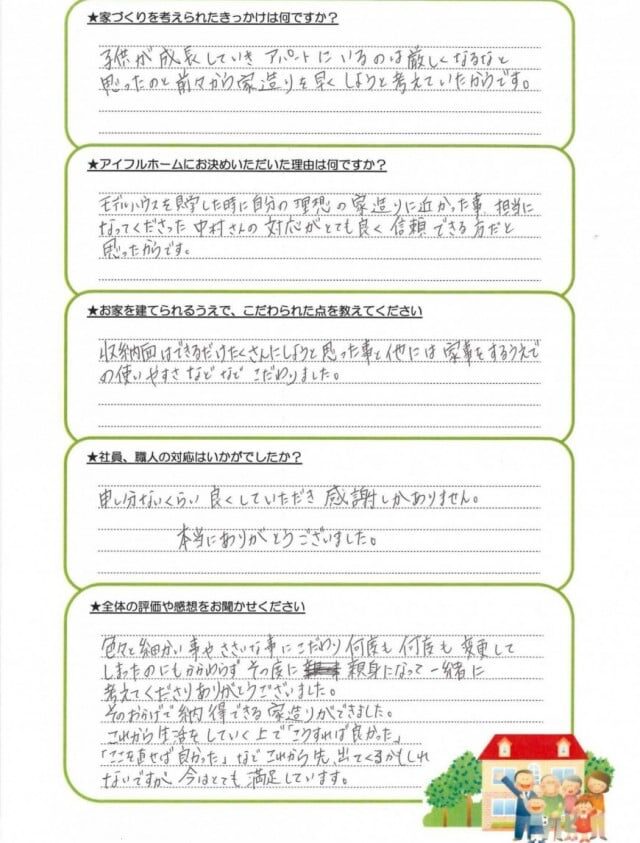 ★家づくりを考えられたきっかけは何ですか？
子供が成長していき アパートにいるのは厳しくなるなと
思ったのと前々から家造りを早くしようと考えていたからです。
★アイフルホームにお決めいただいた理由は何ですか？
モデルハウスを見学した時に自分の理想の家造りに近かった事 担当に
なってくださった中村さんの対応がとても良く信頼できる方だと
思ったからです。
★お家を建てられるうえで、こだわられた点を教えてください
収納面はできるだけたくさんにしようと思った事と他には家事をするうえで
の使いやすさなどなどこだわりました。
★社員、職人の対応はいかがでしたか？
申し分ないくらい良くしていただき感謝しかありません。
本当にありがとうございました。
★全体の評価や感想をお聞かせください
色々と細かい事やささいな事にこだわり何度も何度も変更して
しまったのにもかかわらずその度に 親身になって一緒に
考えてくださりありがとうございました。
そのおかげで納得できる家造りができました。
これから生活をしていく上で「こうすれば良かった」
「ここを直せば良かった」などこれから先、出てくるかもしれ
ないですが、今はとても満足しています。